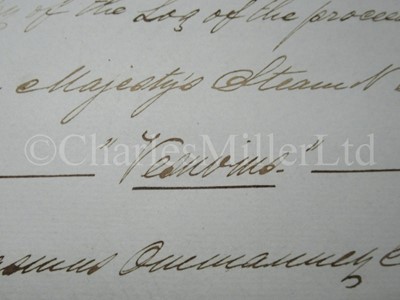 of the Log of the procee
Majesty's Steam V
©CharlesMillerLtd
"Vesuvius."
asmus Ommanney C